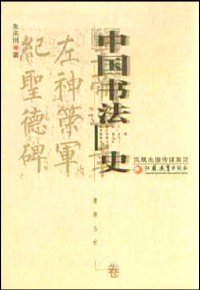 朱关田 著
左神策軍
紀聖德碑
中国书法史
隋唐五代
卷
凤凰出版传媒集团
江苏教育出版社